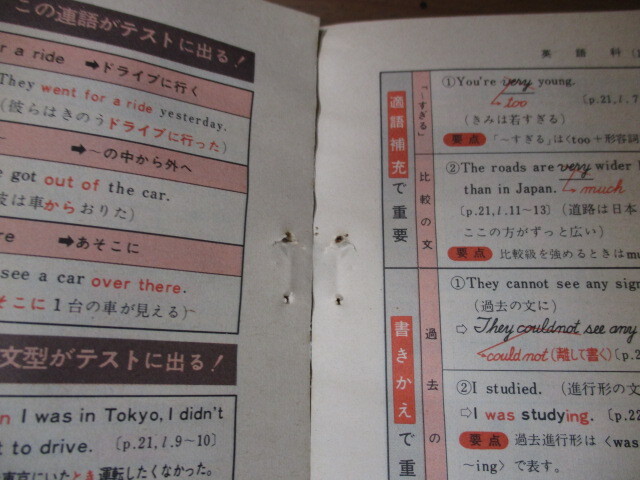 この連語がテストに出る!
r a ride ➡ドライブに行く
They went for a ride yesterday.
(彼らはきのうドライブに行った)
➡〜の中から外へ
e got out of the car.
は車からおりた)
re ➡あそこに
see a car over there.
そこに1台の車が見える)
文型がテストに出る!
n I was in Tokyo, I didn't
t to drive. 〔p.21, l.9~10〕
東京にいたとき運転したくなかった。
英語科
適語補充で重要
「〜すぎる」
①You're very young.
too
〔p.21, l.7
(きみは若すぎる)
要点 「〜すぎる」は〈too+形容詞
比較の文
②The roads are very wider
than in Japan. much
〔p.21, l.11~13〕 (道路は日本
ここの方がずっと広い)
要点 比較級を強めるときはmu
書きかえで重
過去の
①They cannot see any sign
(過去の文に)
⇨ They couldnot see any
could not (離して書く) 〔p.2
②I studied. (進行形の文
⇨I was studying. 〔p.22
要点 過去進行形は〈was
~ing〉で表す。